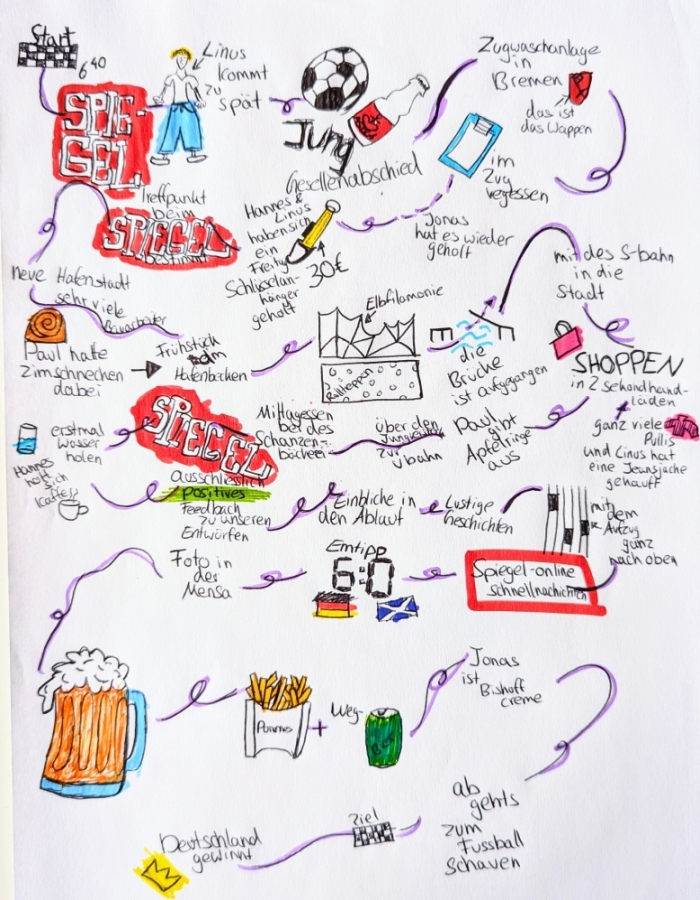 Start
6⁴⁰
SPIE-
GEL
Linus
kommt
zu
spät
Jung
Gesellenabschied
Zugwaschanlage
in
Bremen
das ist
das Wappen
im
Zug
vegessen
Jonas
hat es wieder
geholt
Hannes &
Linus
haben sich
ein
Freitag
Schlüsselan-
hänger
geholt
30€
Treffpunkt
beim
SPIEGEL
neue Hafenstadt
sehr viele
Bauarbeiter
Paul hatte
Zimschnecken
dabei
Frühstück
am
Hafenbecken
Elbfilamonie
Rolltreppen
die
Brücke
ist aufgegangen
mit des S-bahn
in die
Stadt
SHOPPEN
in 2 sekondhand-
läden
ganz viele
Pullis
und Linus hat
eine Jeansjacke
gekauft
Paul
gibt
Apfelringe
aus
über den
zur
übahn
Mittagessen
bei des
Schanzen-
bäckerei
SPIEGEL
erstmal
wasser
holen
Hannes
holt
sich
Kaffee
ausschliesslich
positives
feedback
zu unseren
Entwürfen
Einbliche in
den Ablauf
Lustige
Geschichten
mit
dem
Aufzug
ganz
nach oben
Spiegel-online
schnellnachichten
Emtipp
6:0
Foto in
der
Mensa
Pommes
+
Weg-
Bier
Jonas
ist
Bishoff
creme
ab
gehts
zum
Fussball
schauen
Ziel
Deutschland
gewinnt